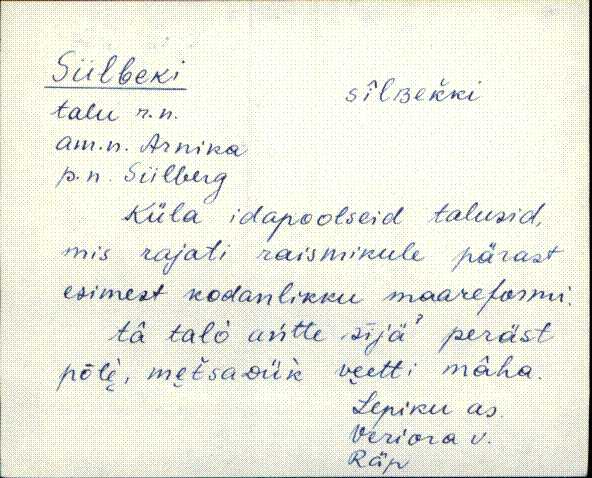 Siilbeki
sîlʙekki
talu r.n.
am.n. Arnika
p.n. Siilberg
Küla idapoolseid talusid,
mis rajati raismikule pärast
esimest kodanlikku maareformi.
tâ talò antte sījä' peräst
põlè, metsaᴅük veetti mâha.
Lepiku as.
Veriora v.
Räp